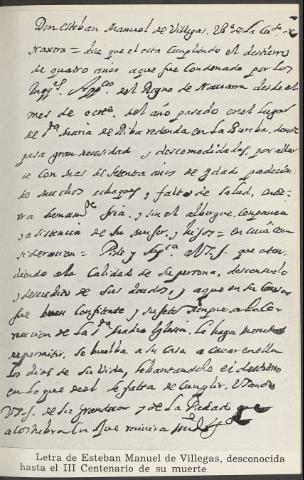 Don Esteban Manuel de Villegas, Vº de la Ciud. de
Naxera = dize que el esta Cumpliendo el destierro
de quatro años aque fue Condenado por los
Inqres. Appcos del Reyno de Nauarra desde el
mes de octe. del año pasado en el lugar
de Sta. Maria de Riba redonda en la Bureba, donde
pasa gran necesidad y descomodidades, por allar
se con mas de setenta años de hedad padecien
do muchos achaques y faltas de Salud, en tie
rra fria, y sin el albergue, Compania
y asistencia de su muger, y hijos = en cuia con
sideracion = Pide y Suppca. a V.S. que aten
diendo a la Calidad de su persona, desconsuelo
y descredito de sus deudos, y a que en su Causa
fue buen Confitente, y sujeto siempre a la Co
rreccion de la Sta. Madre Yglesia. Le haga merced de
permitir, se buelba a su Casa a acauar en ella
los dias de su Vida, lebantandole el destierro
en lo que del le falta de Cumplir,
V.S. de su Grandeza y de la Piedad que
acostumbra
Letra de Esteban Manuel de Villegas, desconocida
hasta el III Centenario de su muerte